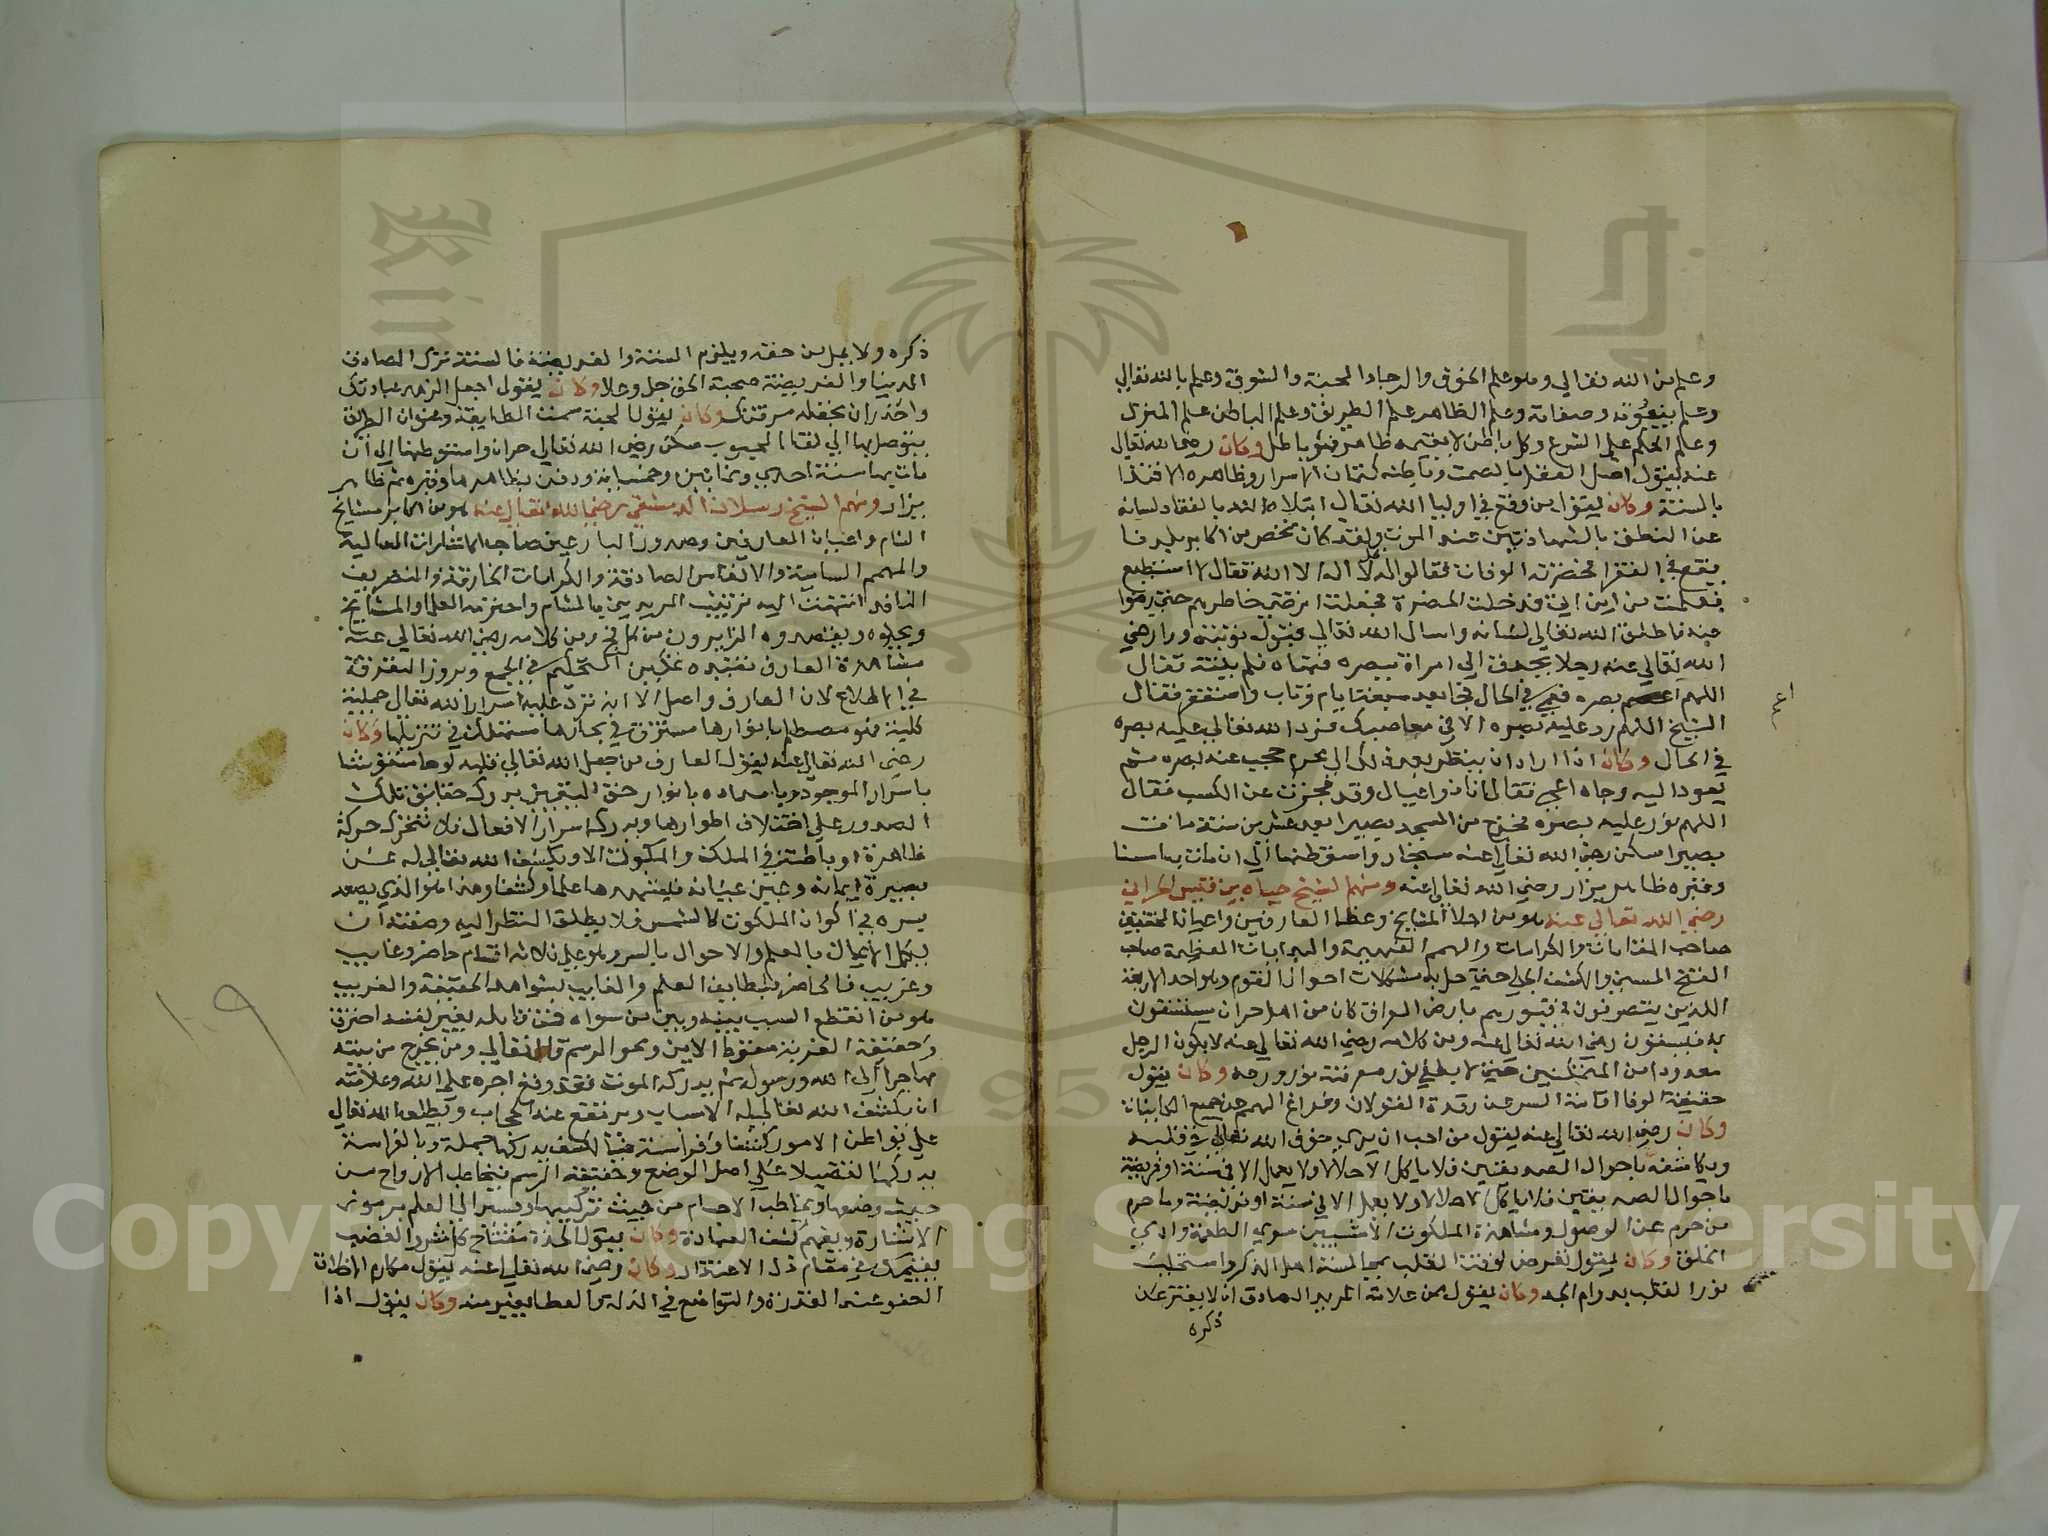 وعلم من الله تعالى وهو علم الخوف والرجا والمحبة والشوق وعلم بالله تعالى
وعلم بنعوته وصفاته وعلم الظاهر علم الطريق وعلم الباطن علم المنزل
وعلم الحكم علم الشرع وكل باطن لا يقيمه ظاهر فهو باطل وكان رضي الله تعالى
عنه يقول اصل العقل بالصمت وباطنه كتمان الاسرار وظاهره الاقتدا
بالسنة وكان يقول من وقع في اوليا الله تعالى ابتلاه الله بانعقاد لسانه
عن النطق بالشهادتين عند الموت ولقد كان شخص من اكابر بلدنا
يقع في الفقرا فحضرته الوفاة فقالوا له قل لا اله الا الله فقال لا استطيع
فعلمت من اين اتي فدخلت الحضرة فجعلت ارضي خاطرهم حتى رضوا
عنه فاطلق الله تعالى لسانه واسال الله تعالى قبول توبته وراى رضي
الله تعالى عنه رجلا يحدق الى امراة ببصره فنهاه فلم ينته فقال
اللهم اعم بصره فعمي في الحال فجا بعد سبعة ايام وتاب واستغفر فقال
اعم
الشيخ اللهم رد عليه بصره الا في معاصيك فرد الله تعالى عليه بصره
في الحال وكان اذا اراد ان ينظر بعد ذلك الى محرم حجب عنه بصره ثم
يعود اليه وجاه اعمى فقال انا ذو اعيال وقد عجزت عن الكسب فقال
اللهم نور عليه بصره فخرج من المسجد بصيرا بعد عشرين سنة مات
بصيرا سكن رضي الله تعالى عنه سنجار واستوطنها الى ان مات بها مسنا
وقبره ظاهر يزار رضي الله تعالى عنه ومنهم الشيخ حياه بن قيس الحراني
رضي الله تعالى عنه هو من اجلا المشايخ وعظما العارفين واعيان المحققين
صاحب المقامات والكرامات والهمم الفخيمة والبدايات العظيمة صاحب
الفتح السني والكشف الجلي حتى حل به مشكلات احوال القوم وهو احد الاربعة
الذين يتصرفون في قبورهم بارض العراق كان من اهل حران يستسقون
به فيسقون رضي الله تعالى عنه ومن كلامه رضي الله تعالى عنه لا يكون الرجل
معدودا من المتمكنين حتى لا يطفي نور معرفته نور ورعه وكان يقول
حقيقة الوفا اقامة السر عن رقدة الغفلات وفراغ الهم عن جميع الكاينات
وكان رضي الله تعالى عنه يقول من احب ان يرى خوف الله تعالى في قلبه
ويكاشف باحوال الصديقين فلا ياكل الا حلالا ولا يعمل الا في سنة او فريضة
باحوال الصديقين فلا ياكل الا حلالا ولا يعمل الا في سنة او فريضة وما حرم
من حرم عن الوصول ومشاهدة الملكوت الا بشيين سوء الطعمة واذى
الخلق وكان يقول تعرض لرقة القلب بمجالسة اهل الذكر واستجلب
نور القلب بدوام الجد وكان يقول من علامة المريد الصادق ان لا يفتر عن
ذكره
ذكره ولا يمل من حقه ويلزم السنة والفريضة فالسنة ترك الصادق
الدنيا والفريضة صحبة الحق جل وعلا وكان يقول اجعل الزهد عبادتك
واحذر ان تجعله حرفتك وكان يقول المحبة سمت الطايفة وعنوان الطريق
يتوصل بها الى لقا المحبوب سكن رضي الله تعالى حران واستوطنها الى ان
مات بها سنة احدى وثمانين وخمسماية ودفن بظاهرها وقبره ثم ظاهر
يزار ومنهم الشيخ رسلان الدمشقي رضي الله تعالى عنه هو من اكابر مشايخ
الشام واعيان العارفين وصدور البارعين صاحب الاشارات العالية
والهمم السامية والانفاس الصادقة والكرامات الخارقة والتصريف
النافذ انتهت اليه تربية المريدين بالشام واحترمه العلما والمشايخ
وبجلوه ويقصدوه الزايرون من كل فج ومن كلامه رضي الله تعالى عنه
مشاهدة العارف تقيده عن التحكم في الجمع وبروز التفرقة
في الاطلاع لان العارف واصل الا انه ترد عليه اسرار الله تعالى جملة
كلية فهو مصطلم بانوارها مستغرق في بحارها مستهلك في تنزيلها وكان
رضي الله تعالى عنه يقول العارف من جعل الله تعالى قلبه لوحا منقوشا
باسرار الموجودات بامداده بانوار حق اليقين يدرك حقايق تلك
السطور على اختلاف اطوارها ويدرك اسرار الافعال فلا تتحرك حركة
ظاهرة او باطنة في الملك والملكوت الا ويكشف الله تعالى له عن
بصيرة ايمانه وعين عيانه فيشهدها علما وكشفا وهذا هو الذي يصعد
بسره في اكوان الملكوت كالشمس فلا يطيق النظر اليه وصفته ان
يكمل الاعمال بالعلم والاحوال بالسر وهو على ثلاثة اقسام حاضر وغايب
وغريب فالحاضر بلطايف العلم والغايب بشواهد الحقيقة والغريب
هو من انقطع السبب بينه وبين من سواه فمن قابله بغير نفسه احترق
وحقيقة الغربة سقوط الاين ومحو الرسم قال تعالى ومن يخرج من بيته
مهاجرا الى الله ورسوله ثم يدركه الموت فقد وقع اجره على الله وعلامته
ان يكشف الله تعالى له الاسباب ويرتفع عنه الحجاب ويطلعه الله تعالى
على بواطن الامور كشفا وفراسة فبالكشف يدركها جملة وبالفراسة
يدركها تفصيلا على اصل الوضع وحقيقة الرسم فيخاطب الارواح من
حيث وضعها ويخاطب الاجسام من حيث تركيبها ويشير الى العلم برموز
الاشارة ويفهم كشف العبارة وكان يقول الحدة مفتاح كل شر والغضب
يقيمك في مقام ذل الاعتذار وكان رضي الله تعالى عنه يقول مكارم الاخلاق
العفو عند القدرة والتواضع في الذلة والعطا بغير منة وكان يقول اذا
١٠٩
Copyright © King Saud University
1957